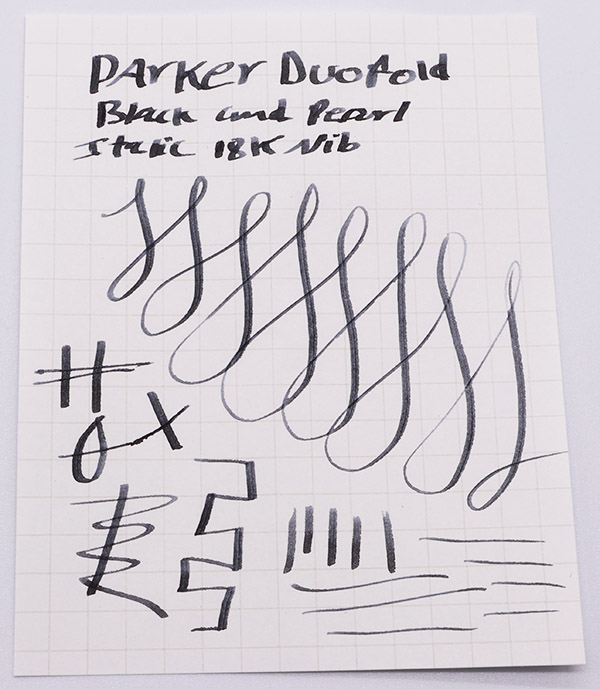 Parker Duofold
Black and Pearl
Italic 18K Nib